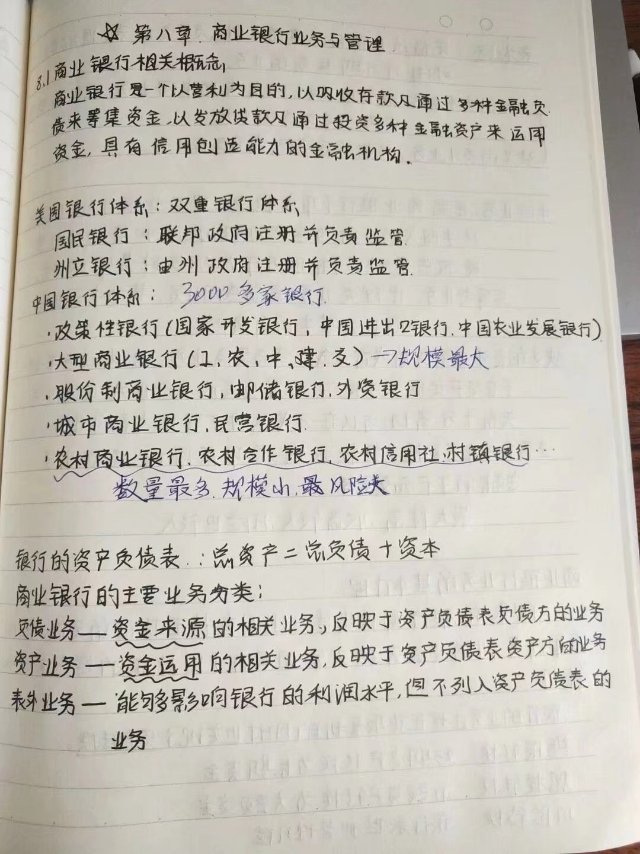 ☆ 第八章. 商业银行业务与管理
8.1 商业银行相关概念
商业银行是一个以营利为目的,以吸收存款及通过多种金融负
债来筹集资金,以发放贷款及通过投资多种金融资产来运用
资金,具有信用创造能力的金融机构。
美国银行体系:双重银行体系
国民银行:联邦政府注册并负责监管
州立银行:由州政府注册并负责监管
中国银行体系: 3000多家银行
·政策性银行(国家开发银行,中国进出口银行.中国农业发展银行)
·大型商业银行(工,农,中,建.交)→规模最大
·股份制商业银行,邮储银行,外资银行
·城市商业银行,民营银行
·农村商业银行.农村合作银行,农村信用社,村镇银行…
数量最多.规模小,最风险大
银行的资产负债表.:总资产=总负债+资本
商业银行的主要业务分类:
负债业务—资金来源的相关业务,反映于资产负债表负债方的业务
资产业务—资金运用的相关业务,反映于资产负债表资产方的业务
表外业务—能够影响银行的利润水平,但不列入资产负债表的
业务